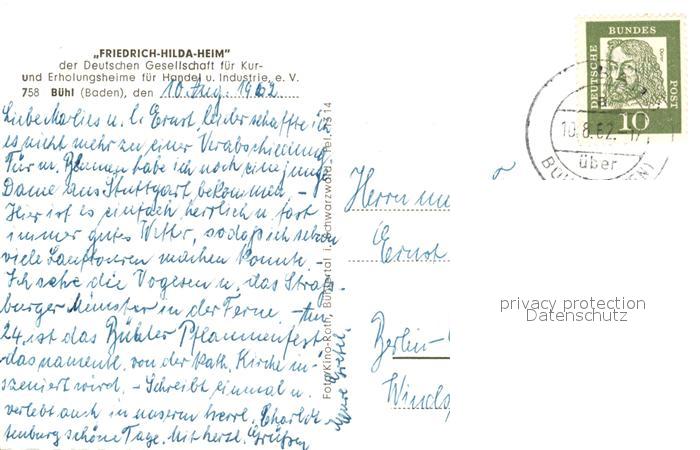 „FRIEDRICH-HILDA-HEIM"
der Deutschen Gesellschaft für Kur-
und Erholungsheime für Handel u. Industrie, e. V.
758 Bühl (Baden), den 10. Aug. 1962
Liebe u. l. Ernst leider schaffte ich
es nicht mehr zu einer Verabschiedung
Für m. habe ich noch eine junge
Dame aus Stuttgart bekommen. –
Hier ist es einfach herrlich u. fast
immer gutes Wetter, sodaß ich schon
viele machen konnte. –
Ich sehe die Vogesen u. das Straß-
burger Münster in der Ferne. – Am
24. ist das Bühler Pflaumenfest
das namentl. von der kath. Kirche in-
szeniert wird. – Schreibt einmal u.
verlebt auch in unserem herrl. Charlot-
tenburg schöne Tage. Mit herzl. Grüßen
Eure Gretel.
Foto/Kino-Roth, Bühlertal i. Schwarzwald Tel. 7514
DEUTSCHE BUNDES POST
Dürer
10
10.8.62.
über
BÜHL (BADEN)
Herrn
Ernst
Berlin-
Winds
privacy protection
Datenschutz